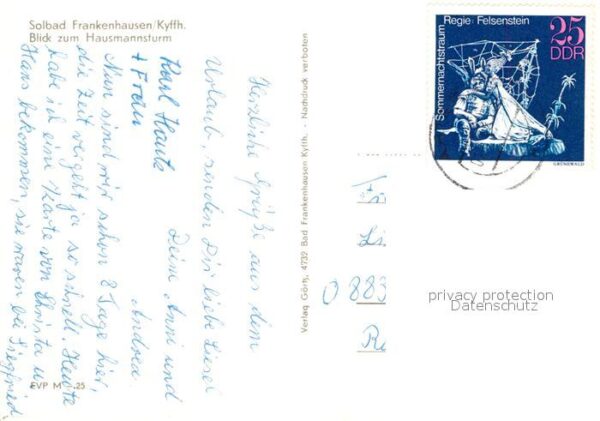 Solbad Frankenhausen/Kyffh.
Blick zum Hausmannsturm
Herzliche Grüße aus dem
Urlaub, senden Dir liebe Liesel
Deine Anni und
Andrea
Karl Hautz
+ Frau
Nun sind wir schon 8 Tage hier,
die Zeit vergeht ja so schnell. Heute
habe ich eine Karte von Christa u.
Hans bekommen, sie waren bei Siegfried
EVP M -.25
Verlag Görtz, 4732 Bad Frankenhausen Kyffh. · Nachdruck verboten
Regie: Felsenstein
Sommernachtstraum
25
DDR
GRÜNEWALD
Fr
Li
0 883
R
privacy protection
Datenschutz